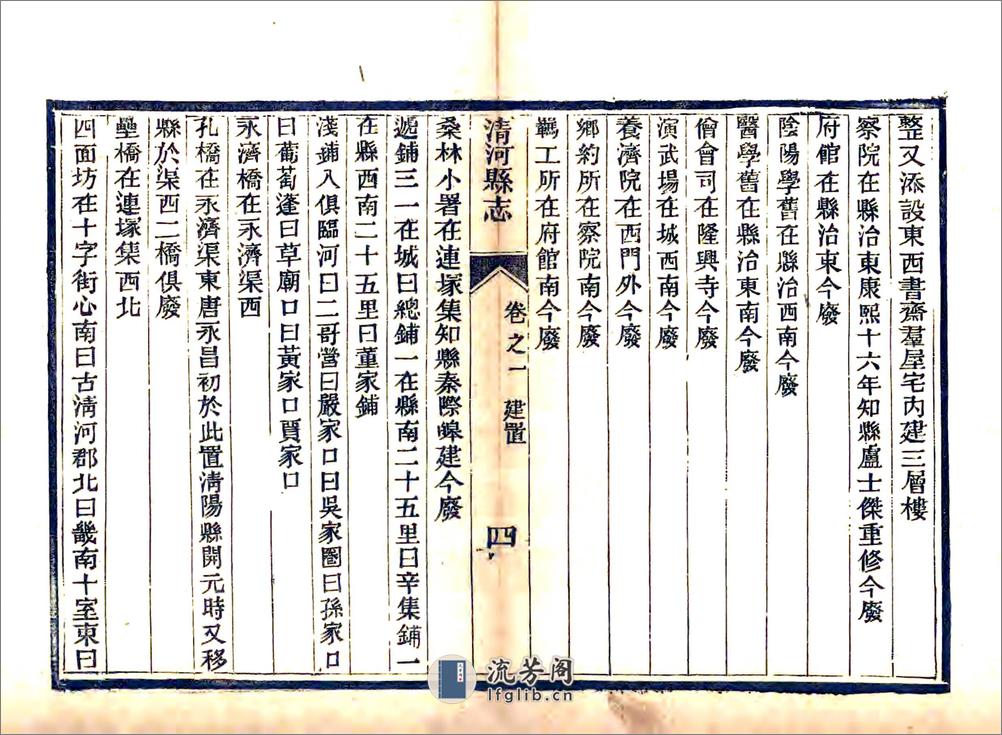 整又添設東西書齋羣屋宅內建三層樓
察院在縣治東康熙十六年知縣盧士傑重修今廢
府館在縣治東今廢
陰陽學舊在縣治西南今廢
醫學舊在縣治東南今廢
僧會司在隆興寺今廢
演武場在城西南今廢
養濟院在西門外今廢
鄉約所在察院南今廢
羈工所在府館南今廢
清河縣志
卷之一
建置
四
桑林小署在連塚集知縣秦際皞建今廢
遞鋪三一在城曰總鋪一在縣南二十五里曰辛集鋪一
在縣西南二十五里曰董家鋪
淺鋪八俱臨河曰二哥營曰嚴家口曰吳家圈曰孫家口
曰葡萄蓬曰草廟口曰黃家口賈家口
永濟橋在永濟渠西
孔橋在永濟渠東唐永昌初於此置清陽縣開元時又移
縣於渠西二橋俱廢
壘橋在連塚集西北
四面坊在十字街心南曰古清河郡北曰畿南十室東曰
流芳閣
lfglib.cn